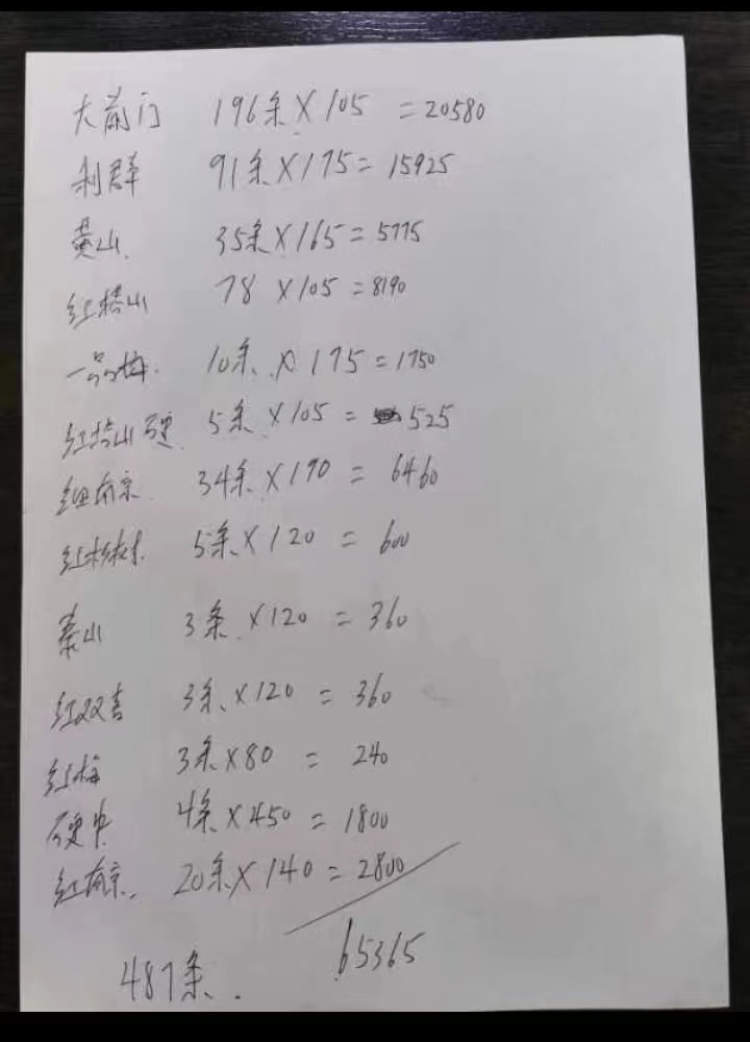 大前门 196条×105 =20580
利群 91条×175= 15925
黄山. 35条×165=5775
红塔山 78 ×105=8190
一品梅. 10条.×175=1750
红塔山硬 5条×105 = 525
细南京. 34条×190 = 6460
红杉树 5条×120 = 600
泰山 3条.×120 = 360
红双喜 3条.×120 = 360
红梅 3条×80 = 240
硬中 4条×450 = 1800
红南京. 20条×140=2800
65365
487条.